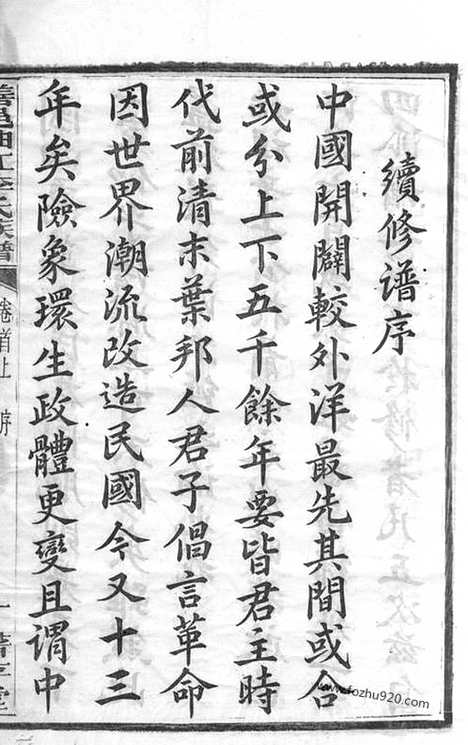 續修譜序
中國開闢較外洋最先其間或合
或分上下五千餘年要皆君主時
代前清末葉邦人君子倡言革命
因世界潮流改造民國今又十三
年矣險象環生政體更變且謂中
李氏族譜
卷首上
www.fozhu920.com